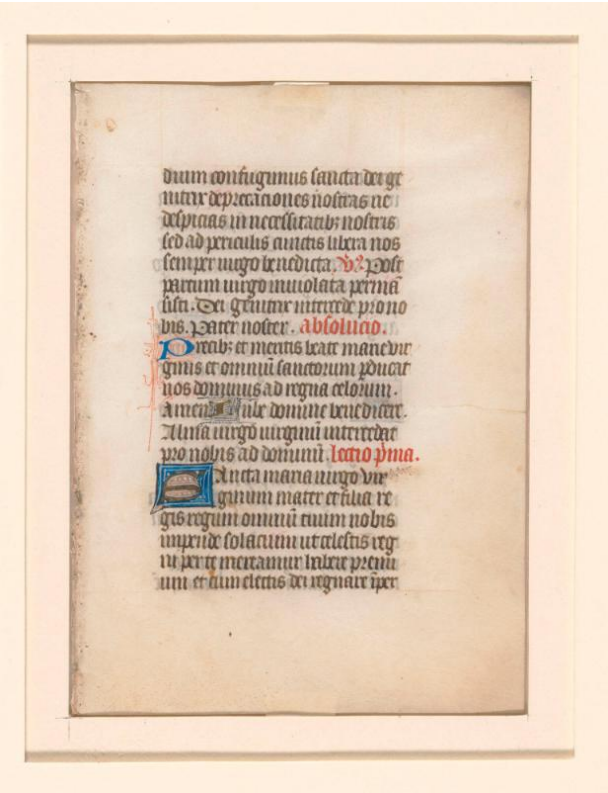 dium confugimus sancta dei ge
nitrix deprecaciones nostras ne
despicias in necessitatibꝫ nostris
sed ad periculis cunctis libera nos
semper uirgo benedicta. V̵. Post
partum uirgo inuiolata permā
sisti. Dei genitrix intercede pro no
bis. Pater noster. absolucio.
Precibꝫ et meritis beate marie vir
ginis et omniū sanctorum ꝑducat
nos dominus ad regna celorum.
Amen Iube domine benedicere.
Alma uirgo uirginū intercedat
pro nobis ad dominū. lectio pͥma.
Sancta maria uirgo vir
ginum mater et filia re
gis regum omniū tuum nobis
impende solacium ut celestis reg
ni per te mereamur habere premi
um et cum electis dei regnare īper